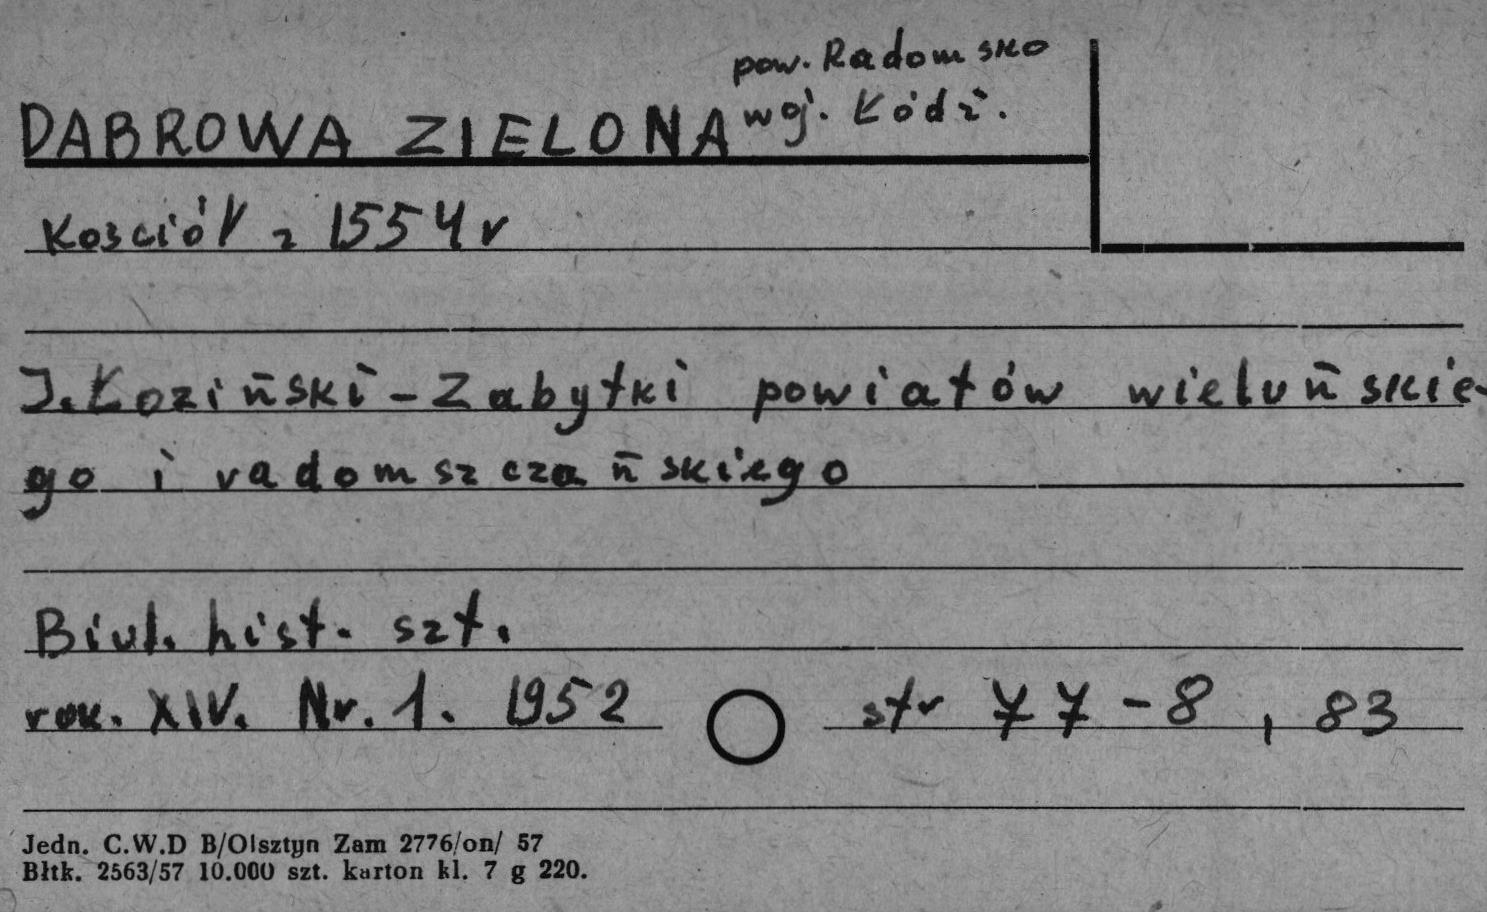 pow. Radomsko
DABROWA ZIELONA woj. Łódź.
Kościół z 1554 r
J. Łoziński - Zabytki powiatów wieluńskie-
go i radomszczańskiego
Biul. hist. szt.
rok. XIV. Nr. 1. 1952 str 77-8, 83
Jedn. C.W.D B/Olsztyn Zam 2776/on/ 57
Błtk. 2563/57 10.000 szt. karton kl. 7 g 220.